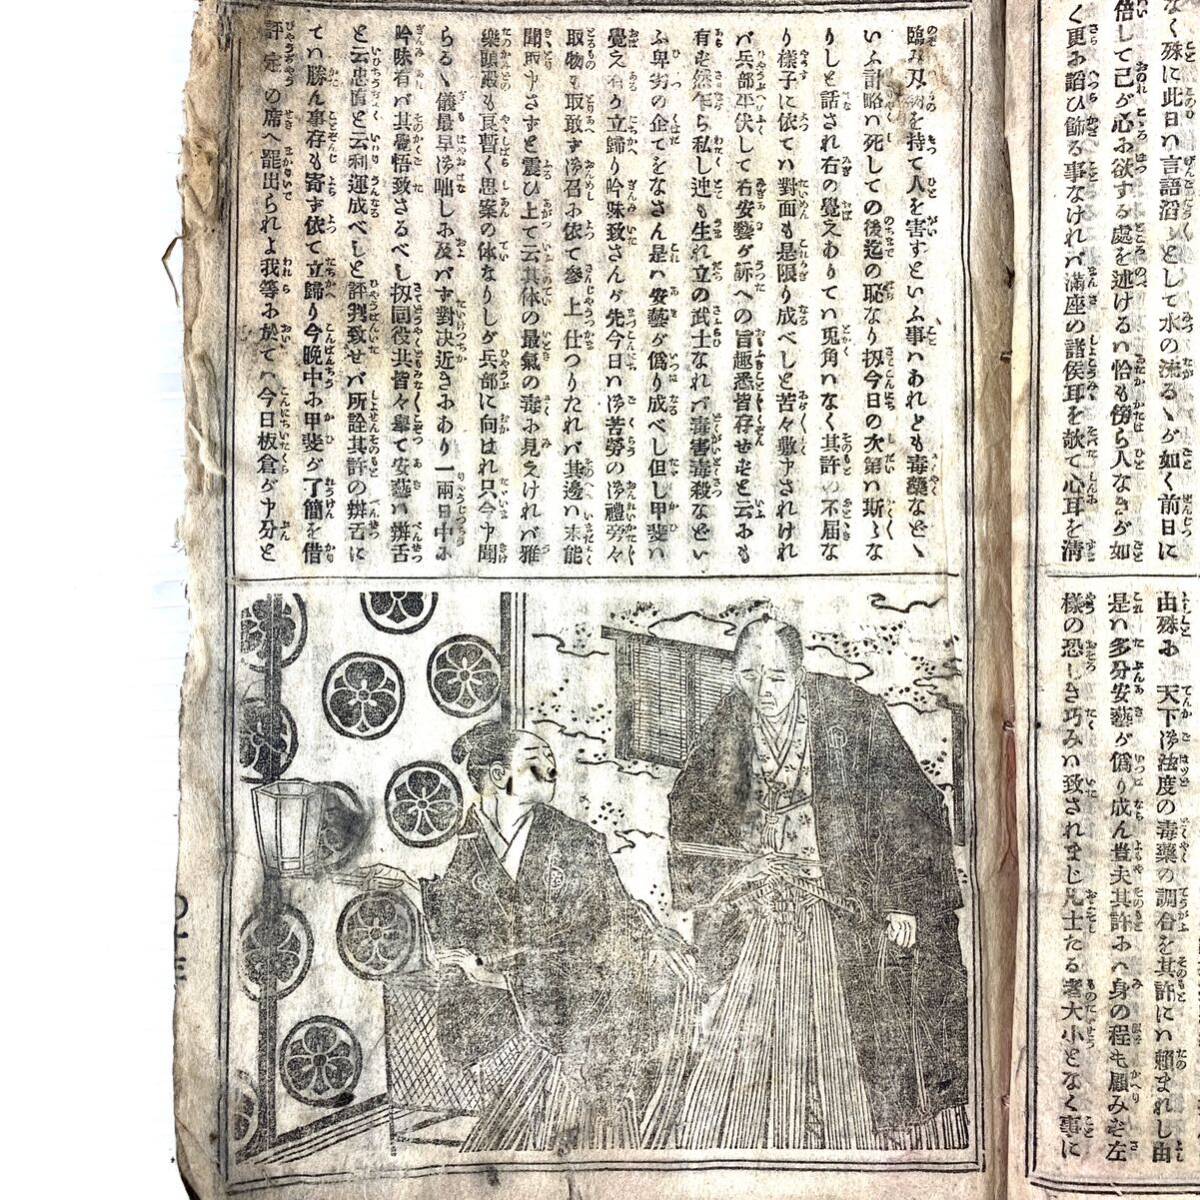 なく殊に此日ハ言語滔〻として水の流るゝが如く前日に
倍して己が心お欲する處を述けるハ恰も傍ら人なきが如
く更お諂ひ飾る事なけれバ滿座の諸侯耳を欹て心耳を淸
由殊お 天下御法度の毒藥の調合を其許にハ賴まれし由
是ハ多分安藝が僞り成ん豊夫其許おハ身の程も顧みず左
樣の恐しき巧みハ致されまじ凡士たる者大小となく事に
臨み刄物を持て人を害すといふ事ハあれども毒藥などゝ
いふ計略ハ死しての後迄の恥なり扨今日の次第ハ斯〻な
りしと話され右の覺えありてハ兎角ハなく其許の不屆な
り樣子に依てハ對面も是限り成べしと苦々敷申されけれ
バ兵部平伏して右安藝が訴への旨趣悉皆存せずと云おも
有ず然乍ら私し迚も生れ立の武士なれバ毒害毒殺などい
ふ卑劣の企てをなさん是ハ安藝が僞り成べし但し甲斐ハ
覺え有り立歸り吟味致さんが先今日ハ御苦勞の御禮旁々
取物も取敢ず御召お依て參上仕つりたれバ其邊ハ未能
聞取申さずと震ひ上て云其体の最氣の毒お見えけれバ雅
樂頭殿も良暫く思案の体なりしが兵部に向はれ只今申聞
らるゝ儀最早御咄しお及バず對決近きおあり一兩日中お
吟味有バ其覺悟致さるべし扨同役共皆々擧て安藝ハ辨舌
と云忠直と云利運成べしと評判致せバ所詮其許の辨舌に
てハ勝ん事存も寄ず依て立歸り今晩中お甲斐が了簡を借
評定の席へ罷出られよ我等お於てハ今日板倉が申分と